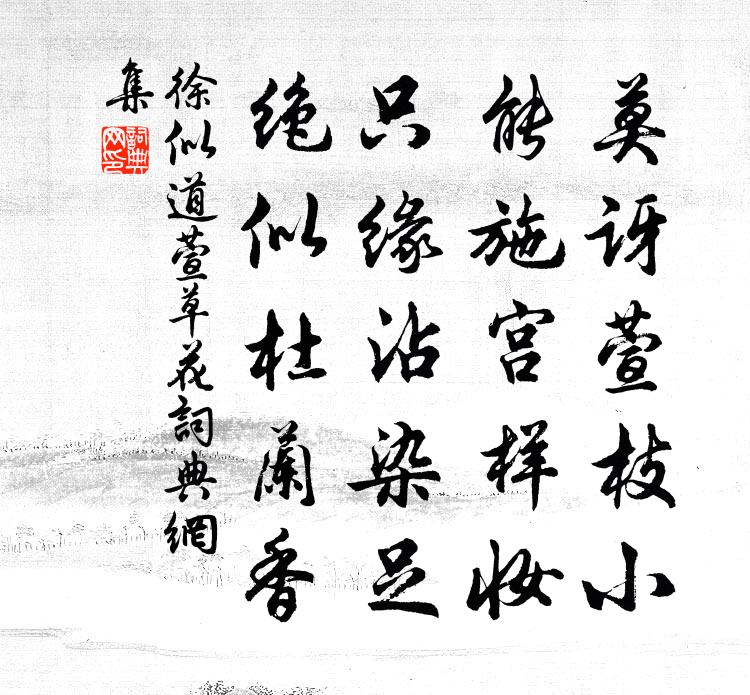 莫讶萱枝小
能施宫样妆
只缘沾染足
绝似杜蘭香
徐似道萱草花詞典網
集
詞典网印